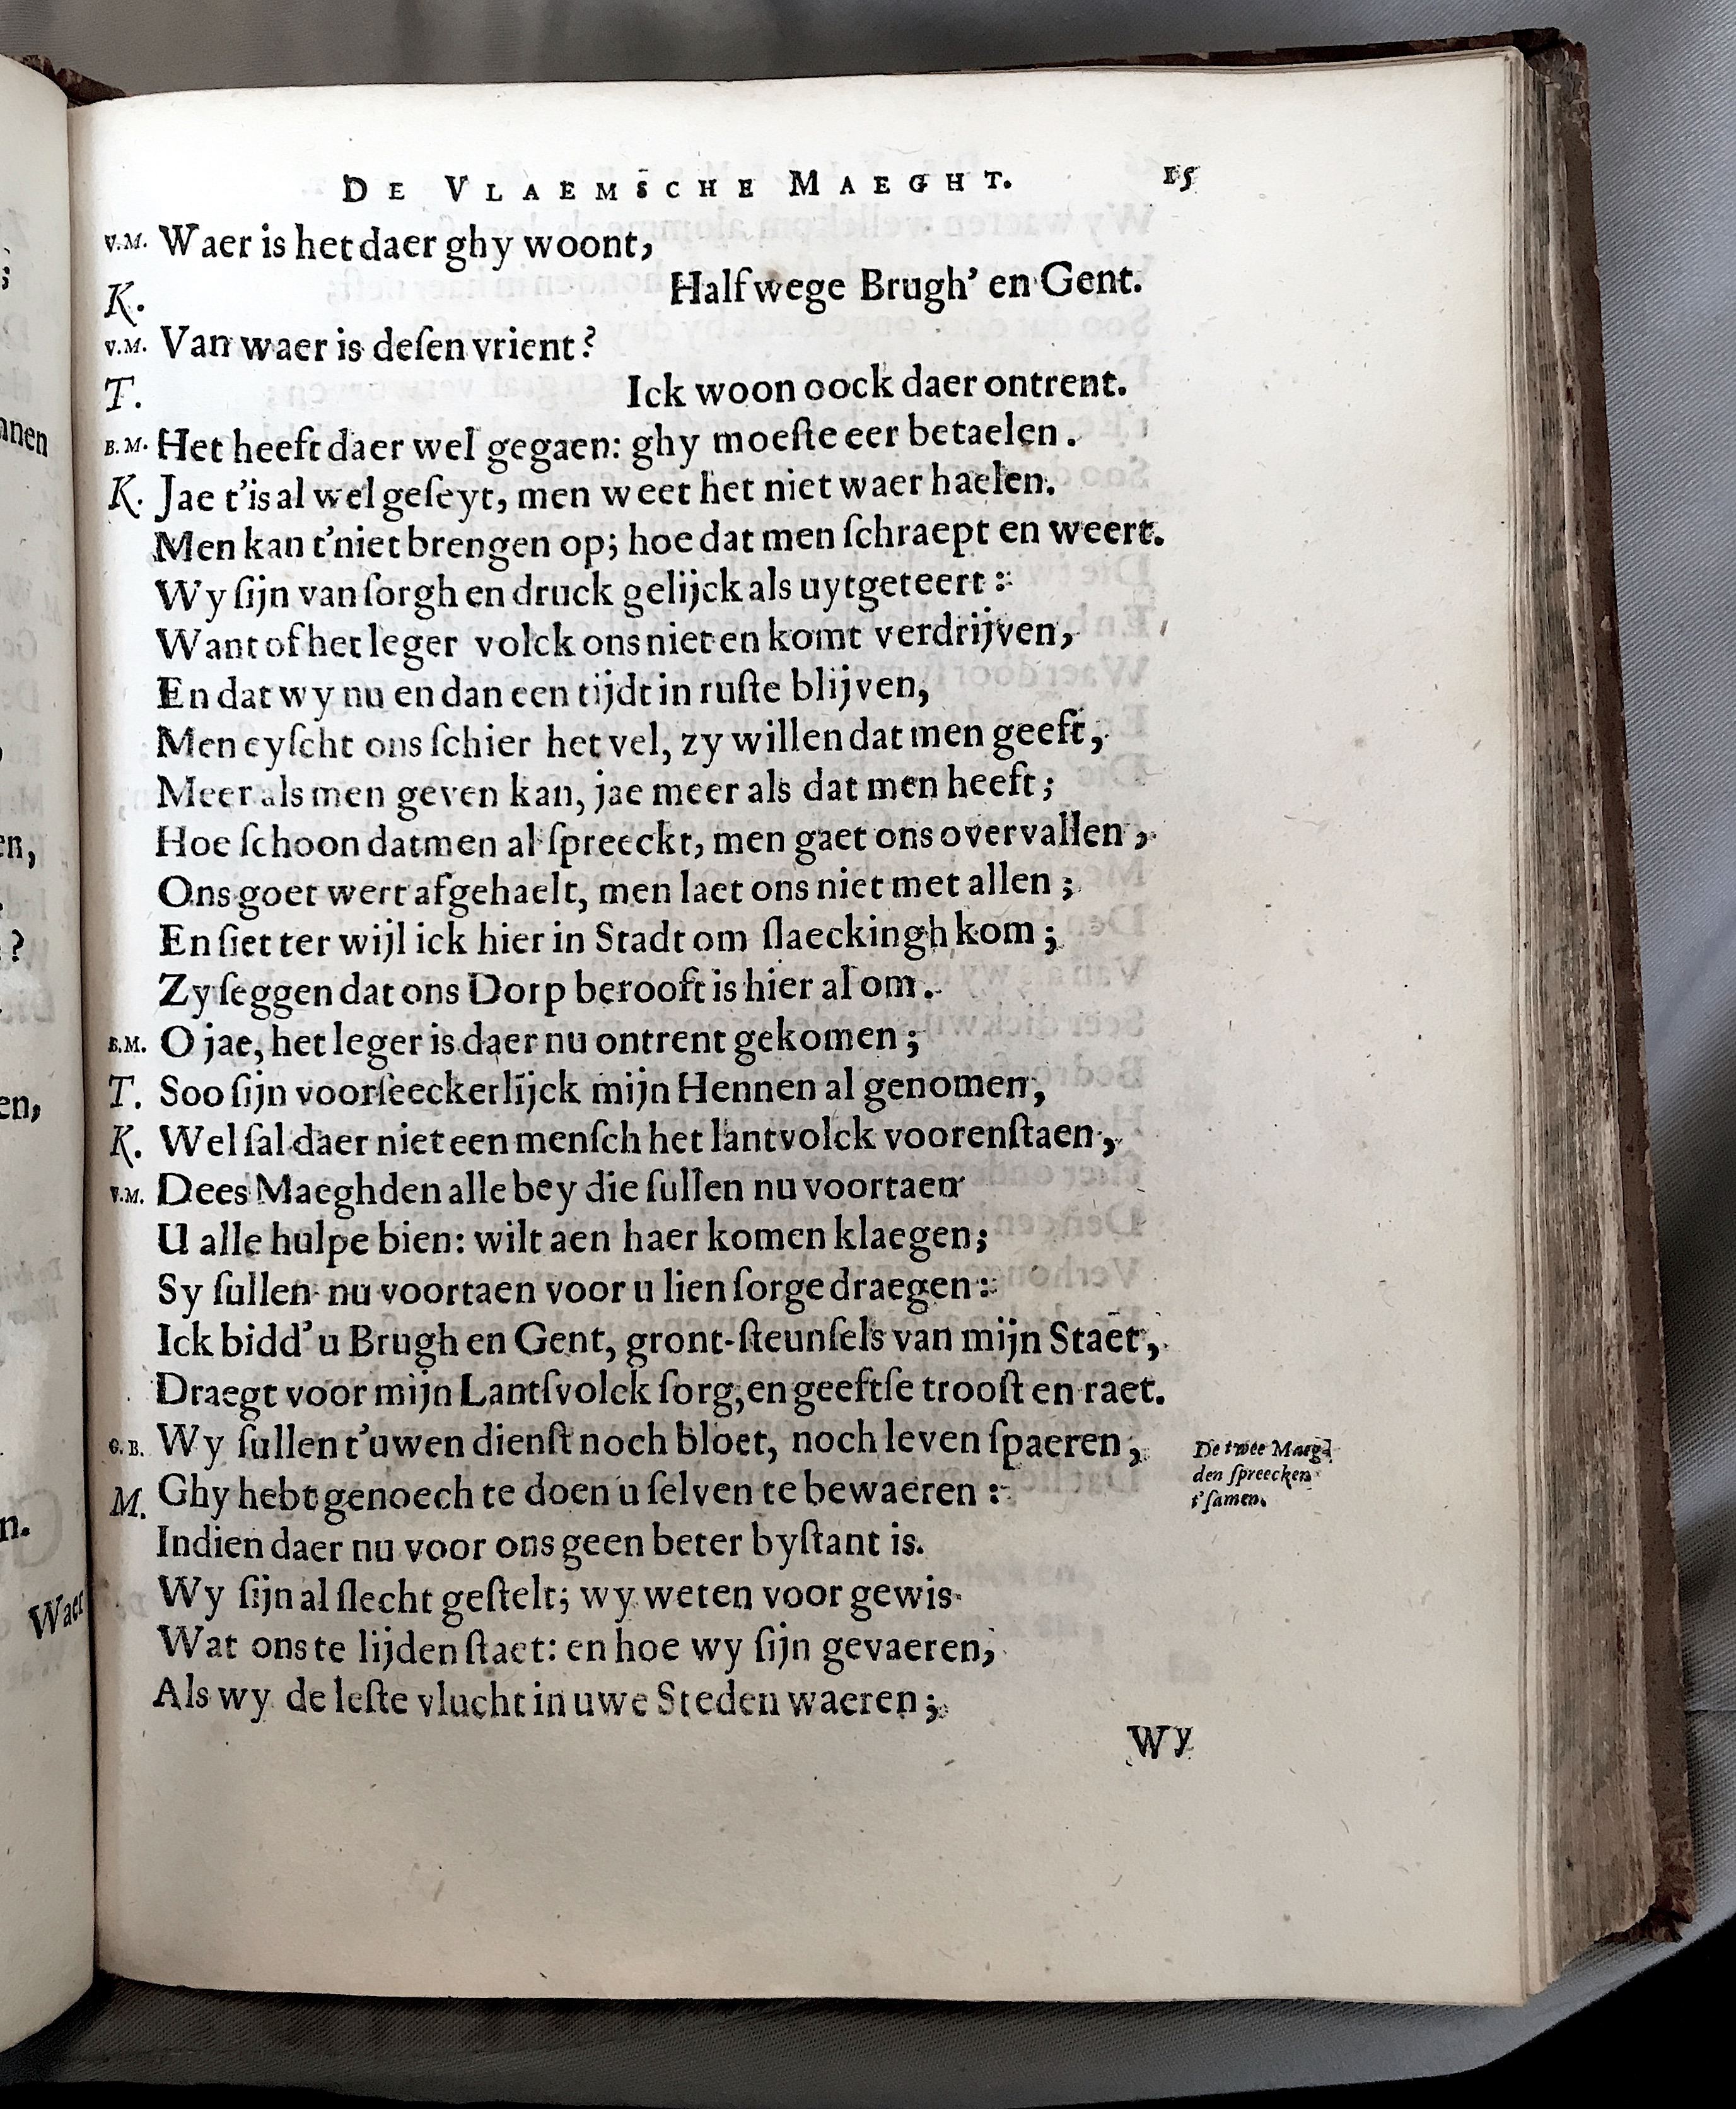 De Vlaemsche Maeght. 15
V.M. Waer is het daer ghy woont,
K. Half wege Brugh' en Gent.
V.M. Van waer is deſen vrient?
T. Ick woon oock daer ontrent.
B.M. Het heeft daer wel gegaen: ghy moeſte eer betaelen.
K. Jae t'is al wel geſeyt, men weet het niet waer haelen.
Men kan t'niet brengen op; hoe dat men ſchraept en weert.
Wy ſijn van ſorgh en druck gelijck als uytgeteert:
Want of het leger volck ons niet en komt verdrijven,
En dat wy nu en dan een tijdt in ruſte blijven,
Men eyſcht ons ſchier het vel, zy willen dat men geeft,
Meer als men geven kan, jae meer als dat men heeft;
Hoe ſchoon datmen al ſpreeckt, men gaet ons overvallen,
Ons goet wert afgehaelt, men laet ons niet met allen;
En ſiet ter wijl ick hier in Stadt om ſlaeckingh kom;
Zy ſeggen dat ons Dorp berooft is hier al om.
B.M. O jae, het leger is daer nu ontrent gekomen;
T. Soo ſijn voorſeeckerlijck mijn Hennen al genomen,
K. Wel ſal daer niet een menſch het lantvolck voorenſtaen,
V.M. Dees Maeghden alle bey die ſullen nu voortaen
U alle hulpe bien: wilt aen haer komen klaegen;
Sy ſullen nu voortaen voor u lien ſorge draegen:
Ick bidd' u Brugh en Gent, gront-ſteunſels van mijn Staet,
Draegt voor mijn Lantſvolck ſorg, en geeftſe trooſt en raet.
G.B. Wy ſullen t'uwen dienſt noch bloet, noch leven ſpaeren,
M. Ghy hebt genoech te doen u ſelven te bewaeren:
Indien daer nu voor ons geen beter byſtant is.
Wy ſijn al ſlecht geſtelt; wy weten voor gewis
Wat ons te lijden ſtaet: en hoe wy ſijn gevaeren,
Als wy de leſte vlucht in uwe Steden waeren;
Wy
De twee Maeg-
den ſpreecken
t'ſamen.
nnen
en,
?
en,
n.
Waer